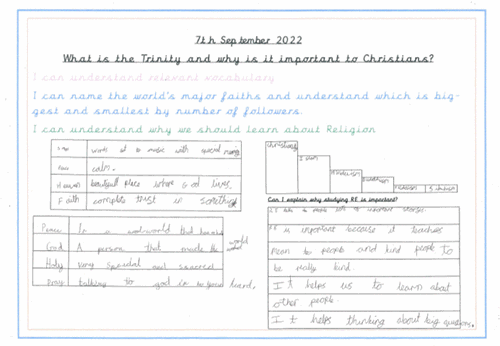 7th September 2022
What is the Trinity and why is it important to Christians?
I can understand relevant vocabulary
I can name the world's major faiths and understand which is big-
gest and smallest by number of followers.
I can understand why we should learn about Religion
music with special
calm.
Heaven beautiful place where God lives.
Faith complete trust in something
Peace
God A person that made the world
Holy very special and sacred
Pray talking to god in
Christianity
Islam
Hinduism
Buddhism
Judaism
Can I explain why studying RE is important?
RE is important because it teaches
mean to people and kind people to
be really kind.
It helps us to learn about
other people.
It helps thinking about big questions.